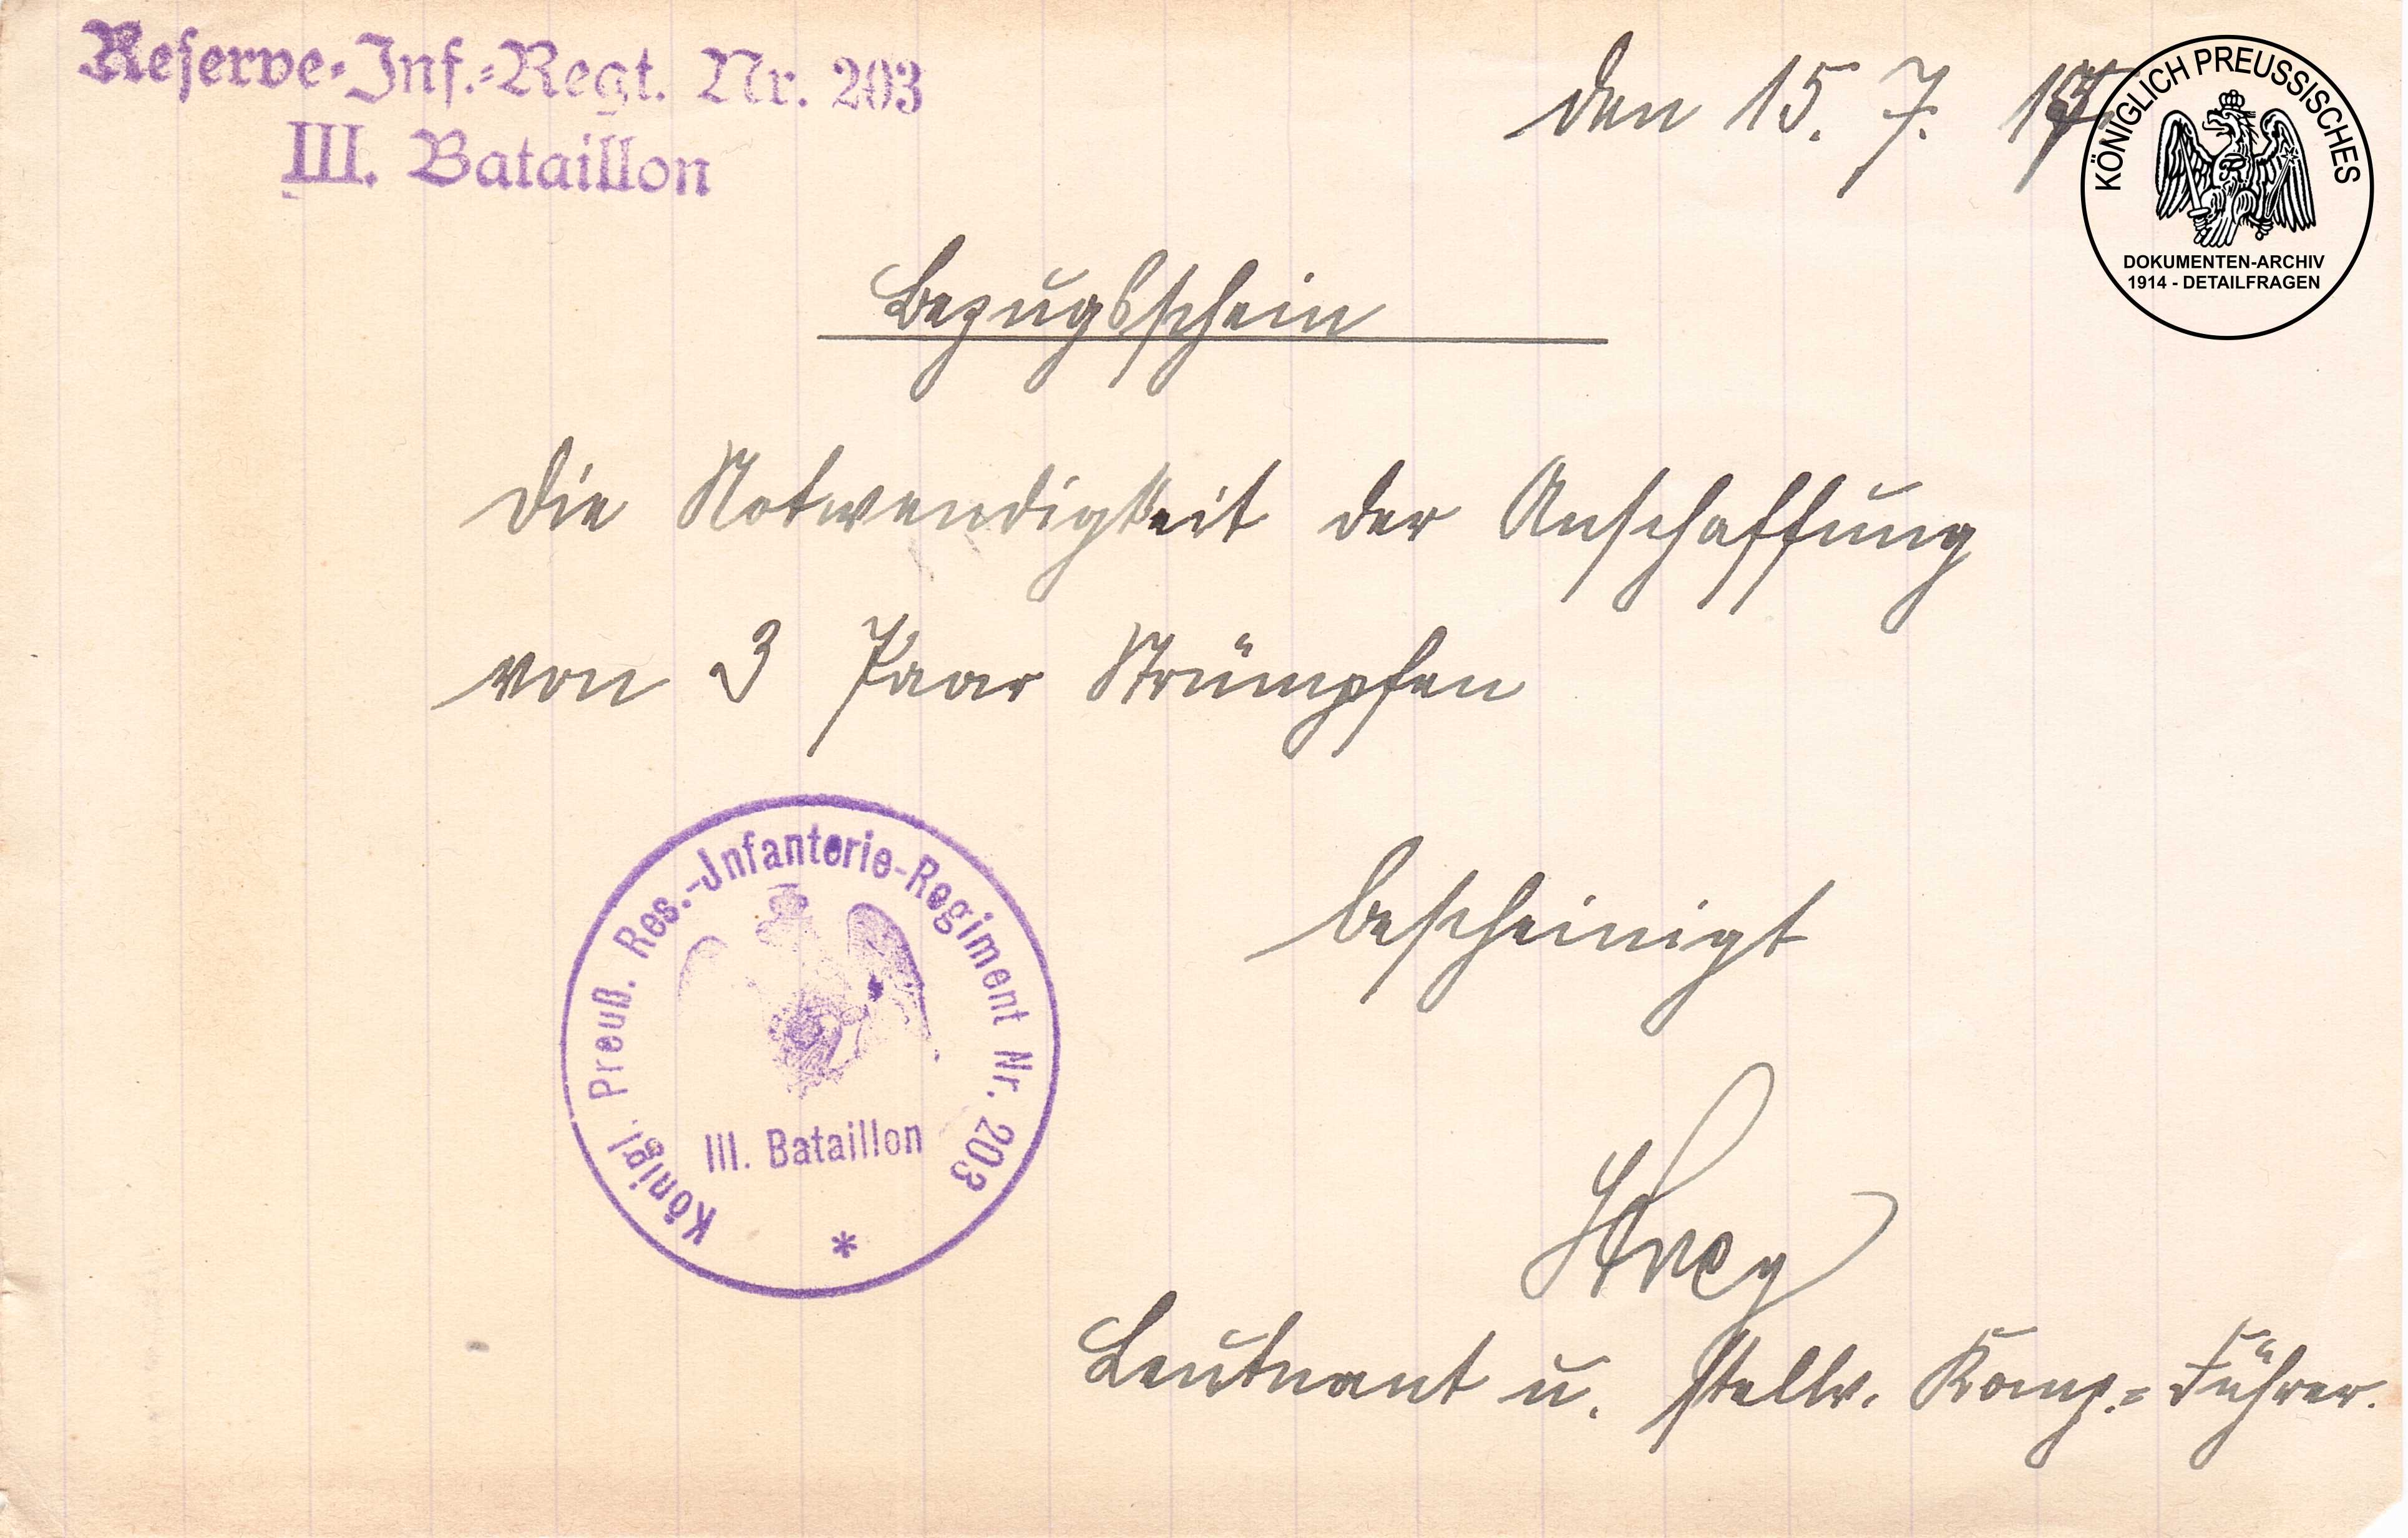 Reserve-Inf.-Regt. Nr. 203
III. Bataillon
den 15. 7. 17.
KÖNIGLICH PREUSSISCHES
DOKUMENTEN-ARCHIV
1914 - DETAILFRAGEN
Bezugsschein
Die Notwendigkeit der Anschaffung
von 3 Paar Strümpfen
bescheinigt
Königl. Preuß. Res.-Infanterie-Regiment Nr. 203
III. Bataillon
*
Leutnant u. stellv. Komp.-Führer.